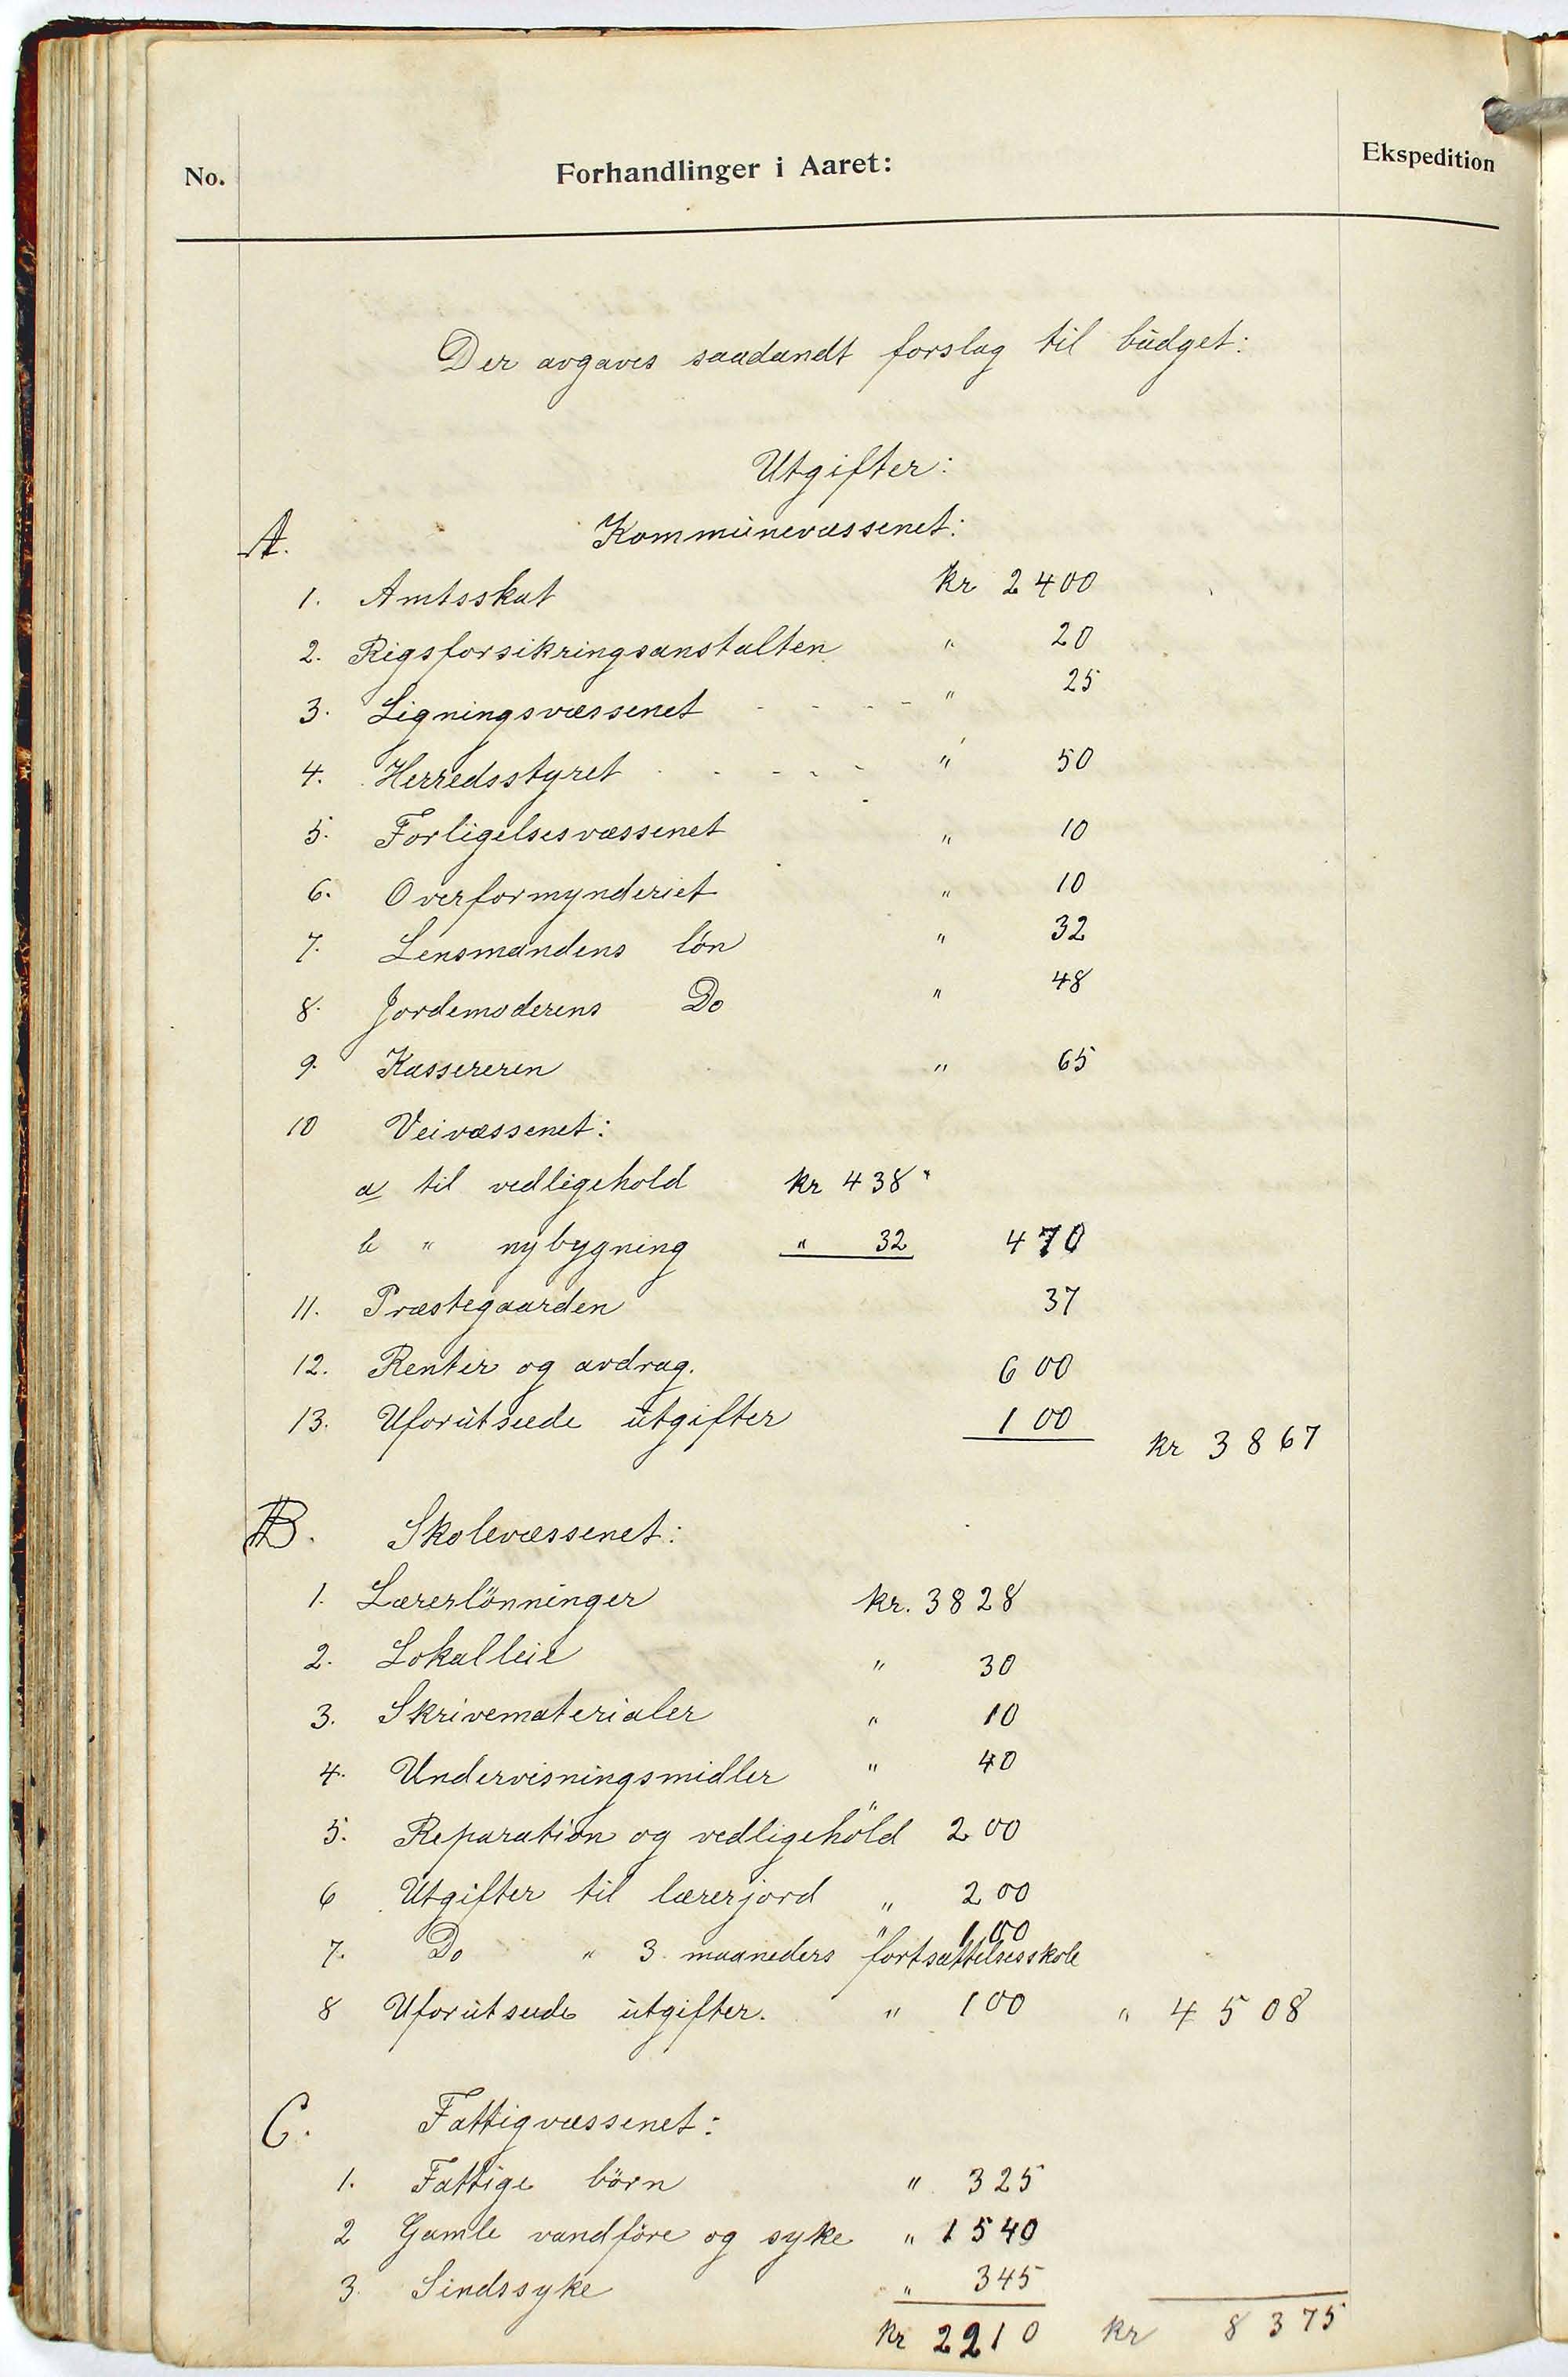 No. Forhandlinger i Aaret: Ekspedition
Der avgaves saadandt forslag til budget:
Utgifter:
A. Kommunevæssenet:
1. Amtsskat kr 2400
2. Rigsforsikringsanstalten " 20
3. Ligningsvæssenet - - - - " 25
4. Herredsstyret - - - - - " 50
5. Forligelsesvæssenet " 10
6. Overformynderiet " 10
7. Lensmandens lön " 32
8. Jordemoderens Do " 48
9. Kassereren " 65
10 Veivæssenet:
a til vedligehold kr 438"
b " nybygning " 32 470
11. Præstegaarden 37
12. Renter og avdrag. 600
13. Uforutseede utgifter 100 kr 3867
B. Skolevæssenet:
1. Lærerlönninger kr. 3828
2. Lokalleie " 30
3. Skrivematerialer " 10
4. Undervisningsmidler " 40
5. Reparation og vedligehold " 200
6 Utgifter til lærerjord " 200
7. Do " 3 maaneders fortsættelsesskole " 100
8 Uforutseede utgifter. " 100 " 4508
C. Fattigvæssenet:
1. Fattige börn " 325
2 Gamle vandföre og syke " 1540
3. Sindssyke " 345
kr 2210 kr 8375